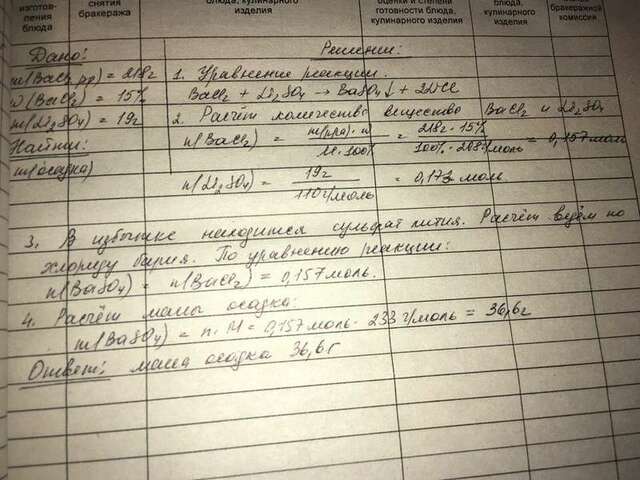 изготов-
ления
блюда
снятия
бракеража
блюда, кулинарного
изделия
оценки и степени
готовности блюда,
кулинарного изделия
блюда,
кулинарного
изделия
бракеражной
комиссии
Дано:
Решение:
m(BaCl2 рр) = 218г
1. Уравнение реакции.
ω(BaCl2) = 15%
BaCl2 + Li2SO4 → BaSO4↓ + 2LiCl
m(Li2SO4) = 19г
2. Расчёт количества вещества BaCl2 и Li2SO4
Найти:
n(BaCl2) = m(рра)·ω / M·100% = 218г·15% / 100%·208г/моль = 0,157моль
m(осадка)
n(Li2SO4) = 19г / 110г/моль = 0,173 моль
3. В избытке находится сульфат лития. Расчёт ведём по
хлориду бария. По уравнению реакции:
n(BaSO4) = n(BaCl2) = 0,157 моль.
4. Расчёт массы осадка:
m(BaSO4) = n·M = 0,157моль·233г/моль = 36,6г
Ответ: масса осадка 36,6г